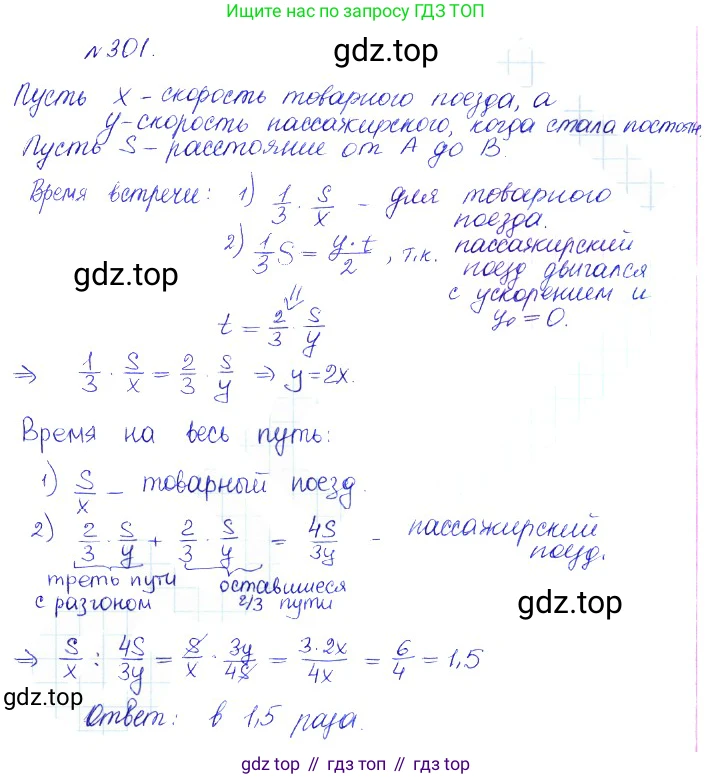 Ищите нас по запросу ГДЗ ТОП
№301.
gdz.top
Пусть x - скорость товарного поезда, а
y - скорость пассажирского, когда стала постоян.
Пусть S - расстояние от A до B.
Время встречи: 1) 1/3 · S/x - для товарного
поезда.
2) 1/3 S = y·t/2, т.к. пассажирский
поезд двигался
с ускорением и
y₀ = 0.
gdz.top
⇓
t = 2/3 · S/y
⇒ 1/3 · S/x = 2/3 · S/y ⇒ y = 2x.
Время на весь путь:
1) S/x - товарный поезд.
2) 2/3 · S/y + 2/3 · S/y = 4S/3y - пассажирский
поезд.
треть пути оставшиеся
с разгоном 2/3 пути
gdz.top
⇒ S/x : 4S/3y = S/x · 3y/4S = 3·2x/4x = 6/4 = 1,5
gdz.top
Ответ: в 1,5 раза.
gdz top // гдз топ // gdz.top